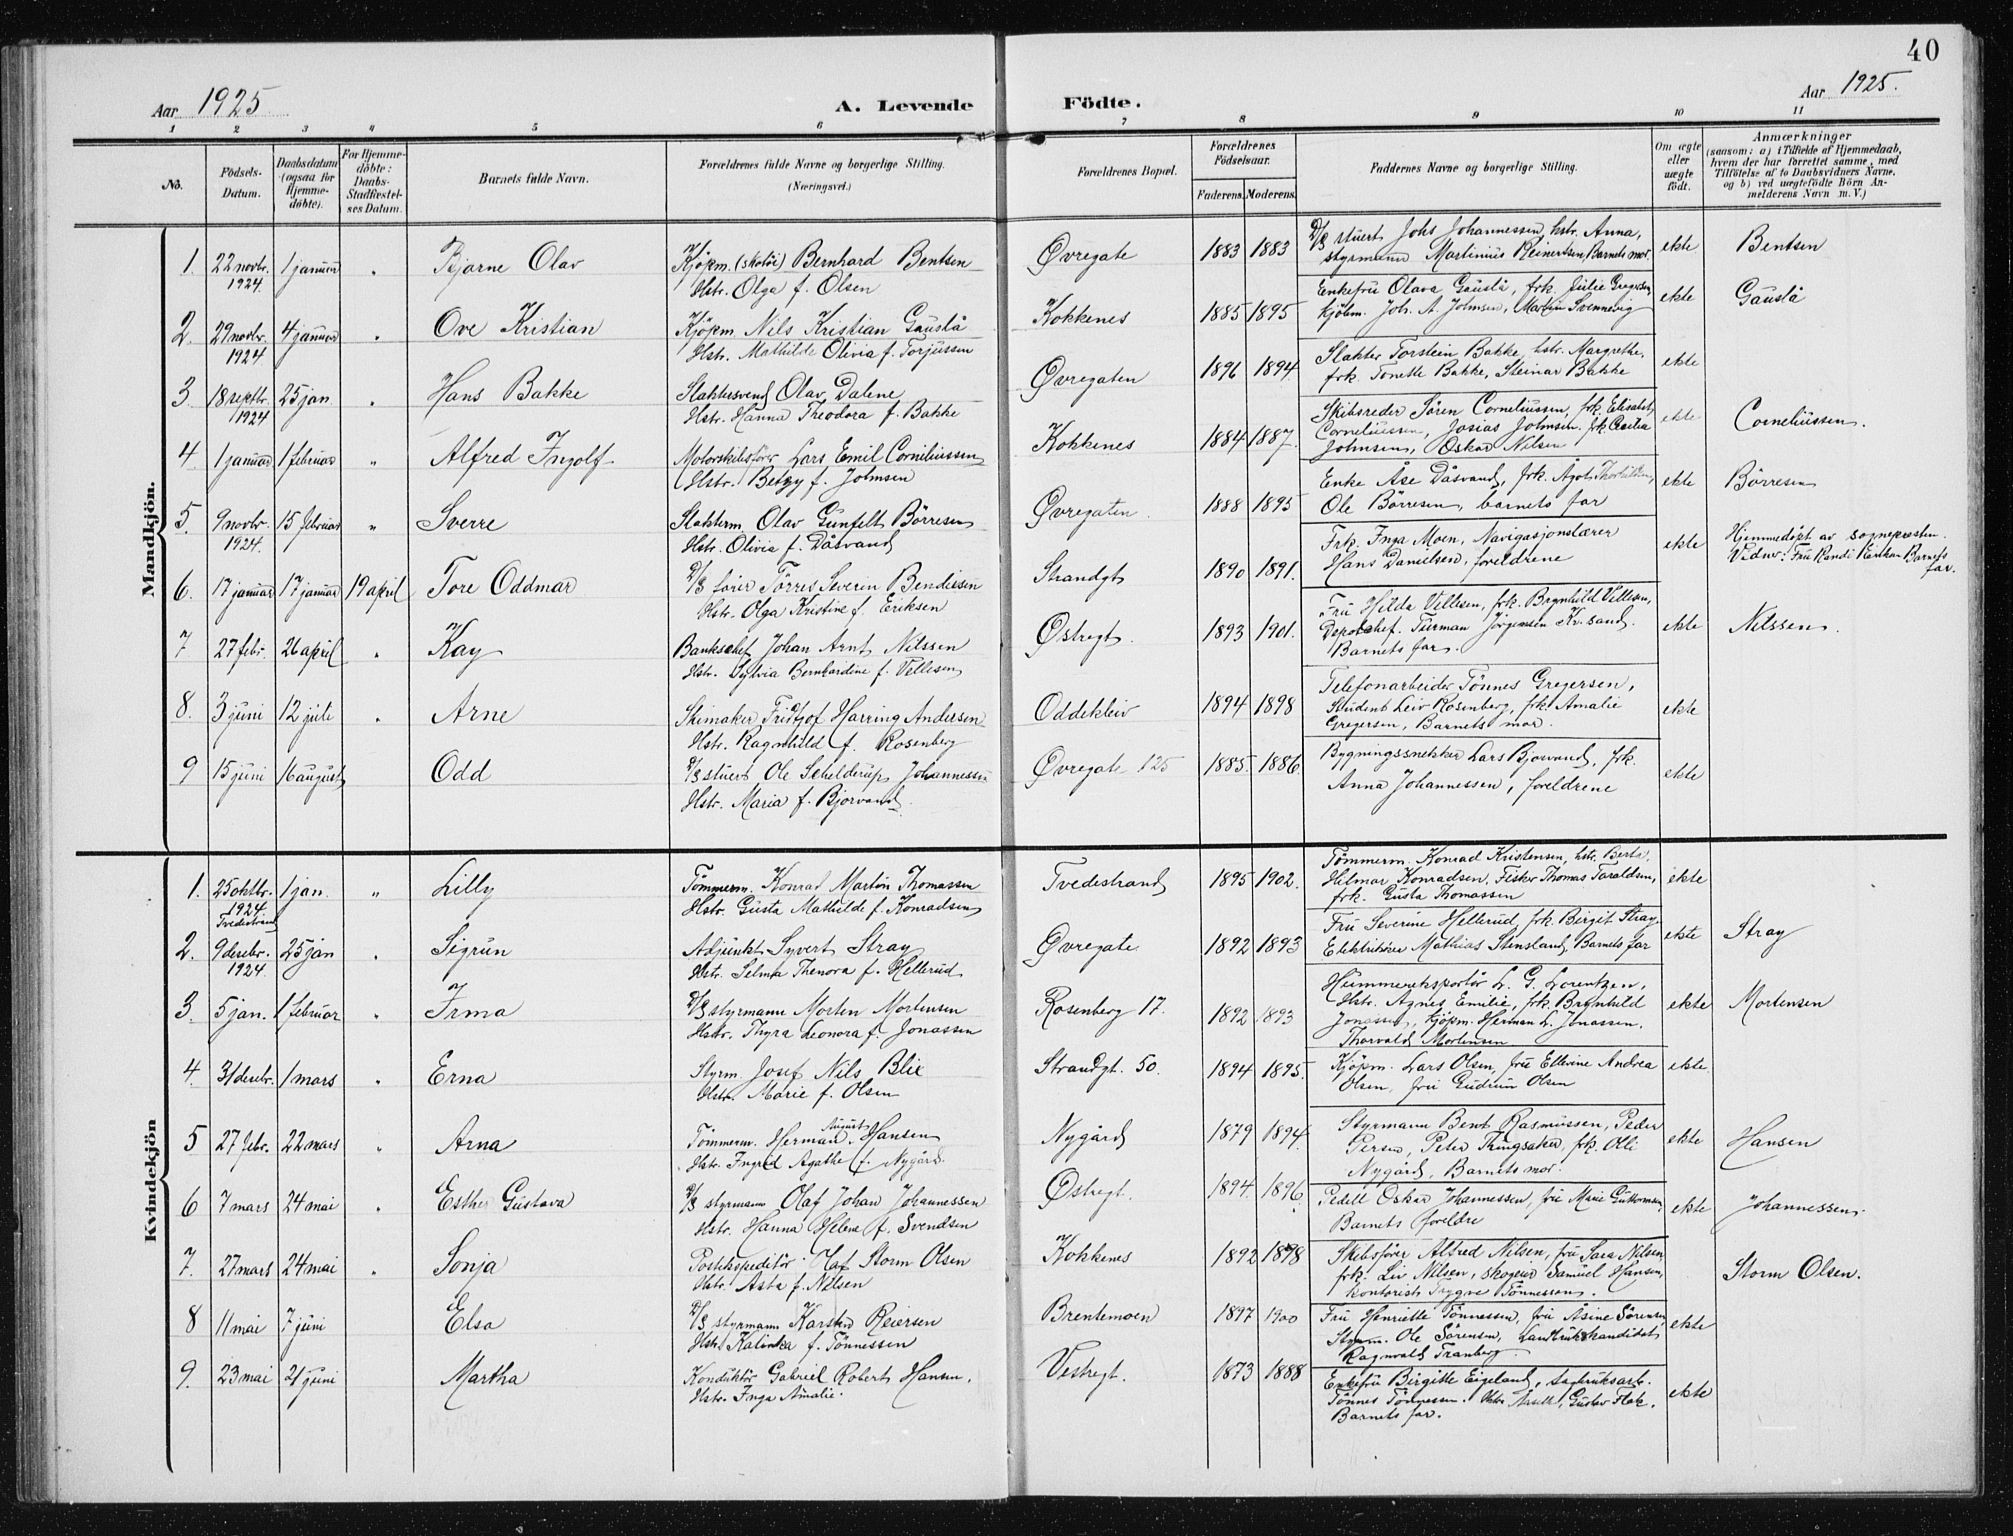 40
Aar 1925
A. Levende Födte.
Aar 1925.
1 2 3 4 5 6 7 8 9 10 11
No.
Födsels-Datum.
Daabsdatum (ogsaa for Hjemme-döbte).
For Hjemme-döbte: Daabs-Stadfæstel-ses Datum.
Barnets fulde Navn.
Forældrenes fulde Navne og borgerlige Stilling. (Næringsvei.)
Forældrenes Bopæl.
Forældrenes Födselsaar.
Faderens. Moderens.
Faddernes Navne og borgerlige Stilling.
Om ægte eller uægte födt.
Anmærkninger
(saasom: a) i Tilfælde af Hjemmedaab,
hvem der har forrettet samme, med
Tilföielse af to Daabsvidners Navne,
og b) ved uægtefödte Börn An-
melderens Navn m. V.)
Mandkjön.
1. 22 novbr. 1924. 1 januar " Bjarne Olav
Kjöpm. (skotöi) Bernhard Bentsen
Hstr. Olga f. Olsen
Øvregate 1883 1883
D/S stuert Johs Johannessen, hstr. Anna,
styrmann Martinius Reinertsen, Barnets mor.
ekte Bentsen
2. 29 novbr. 1924 4 januar " Ove Kristian
Kjöpm. Nils Kristian Gauslå
Hstr. Mathilde Olivia f. Torjussen
Kokkenes 1885 1895
Enkefru Olava Gauslå, frk. Julie Gregersen,
kjöbm. Joh. A. Johnsen, Martin Svennevig
ekte Gauslå
3 18 septbr. 1924 25 jan. " Hans Bakke
Slaktersvend Olav Dalene
Hstr. Hanna Theodora f. Bakke
Øvregaten 1896 1894.
Slakter Torstein Bakke, hstr. Margrethe,
frk. Tonette Bakke, Steinar Bakke
ekte
4 1 januar 1 februar " Alfred Ingolf
Motorskibsförer Lars Emil Corneliussen
Hstr. Betzy f. Johnsen
Kokkenes 1884 1887.
Skibsreder Sören Corneliussen, frk. Elisabet
Corneliussen, Josias Johnsen. frk. Cecilia
Johnsen, Oskar Nilsen
ekte Corneliussen.
5. 9 novbr. 1924. 15 februar " Sverre
Slakterm. Olav Gunfelt Börresen
Hstr. Olivia f. Dåsvand
Øvregaten. 1888 1895
Enke Åse Dåsvand, frk. Ågot
Ole Börresen, barnets far
ekte Börresen
6. 17 januar 17 januar 19 april Tore Oddmar
D/S förer Törres Severin Bendixsen
Hstr. Olga Kristine f. Eriksen
Strandgt 1890 1891.
Frk. Inga Moen, Navigasjonslærer
Hans Danielsen, foreldrene
ekte
Hjemmedöpt av sognepresten.
Vidner: Fru Randi Barnets
far.
7 27 febr. 26 april " Kay
Bankschef Johan Arnt Nilssen
Hstr. Sylvia Bernhardine f. Vellesen
Østregt. 1893 1901.
Fru Hilda Vellesen, frk. Brynhild Vellesen,
Depotchef. Turman Jörgensen Kv.sand.
Barnets far.
ekte Nilssen.
8. 3 juni 12 juli " Arne
Skimaker Fridtjof Harring Andersen
Hstr. Ragnhild f. Rosenberg
Oddekleiv 1894 1898
Telefonarbeider Tönnes Gregersen,
Student Leiv Rosenberg, frk. Amalie
Gregersen, Barnets mor.
ekte
9 15 juni 16 august Odd
D/S stuert Ole Schelderup Johannessen
Hstr. Maria f. Bjorvand.
Øvregate 125 1885. 1886.
Bygningssnekker Lars Bjorvand, frk.
Anna Johannessen, foreldrene
ekte
Kvindekjön
1. 25 oktbr. 1924 Tvedestrand 1 jan. " Lilly
Tömmerm. Konrad Martin Thomassen
Hstr. Gusta Mathilde f. Konradsen
Tvedestrand 1895 1902.
Tömmerm. Konrad Kristensen, hstr. Berta,
Hilmar Konradsen, Fisker Thomas Taraldsen,
frk. Gusta Thomassen
ekte
2. 9 desbr. 1924. 25 jan " Sigrun
Adjunkt Syvert Stray
Hstr. Selma Thenora f. Hellerud
Øvregate 1892 1893
Fru Severine Hellerud, frk. Birgit Stray
Elektriker Mathias Stensland, Barnets far
ekte Stray
3. 5 jan. 1 februar " Irma
D/S styrmann Morten Mortensen
Hstr. Thyra Leonora f. Jonassen
Rosenberg 17. 1892 1893
Hummereksportör L. G. Lorentzen,
Hstr. Agnes Emilie, frk. Brynhild
Jonassen, kjöpm. Herman L. Jonassen,
Thorvald Mortensen
ekte Mortensen
4. 31 desbr. 1 mars " Erna
Styrm. Josef Nils Blix
Hstr. Marie f. Olsen
Strandgt. 50. 1894 1895.
Kjöpm. Lars Olsen, fru Ellevine Andrea
Olsen, fru Gudrun Olsen
ekte.
5 27 febr. 22 mars " Arna
Tömmerm. Herman August Hansen
Hstr. Ingrid Agathe f. Nygård.
Nygård 1879 1894.
Styrmann Bent Rasmussen, Peder
Persen, Peter Tringsaker, frk. Olli
Nygård, Barnets mor.
ekte Hansen
6 7 mars 24 mai " Esther Gustava
D/S styrmann Olaf Johan Johannessen
Hstr. Hanna Helene f. Svendsen
Østregt. 1894. 1896.
Pedell Oskar Johannessen, fru Marie Guttormsen,
Barnets foreldre
ekte Johannessen.
7. 27 mars 24 mai " Sonja
Postekspeditör Olaf Storm Olsen
Hstr. Asta f. Nilsen
Kokkenes 1892 1898
Skibsförer Alfred Nilsen, fru Sara Nilsen,
frk. Liv Nilsen, skogeier Samuel Hansen,
kontorist Trygve Tönnessen.
Storm Olsen.
8 11 mai 7 juni Elsa
D/S styrmann Karsten Reiersen
Hstr. Kalinka f. Tönnessen
Brentemoen 1897 1900
Fru Henriette Tönnessen, fru Åsine Sörensen,
Styrm. Ole Sörensen, Landbrukskandidat
Ragnvald Tranberg.
ekte
9. 23 mai 21 juni Martha
Konduktör Gabriel Robert Hansen.
Hstr. Inga Amalie.
Vestregt. 1873 1888
Enkefru Birgitte Eigeland, sagbruksarb.
Tönnes Tönnessen. Gustav Flak.
Barnets far.
ekte